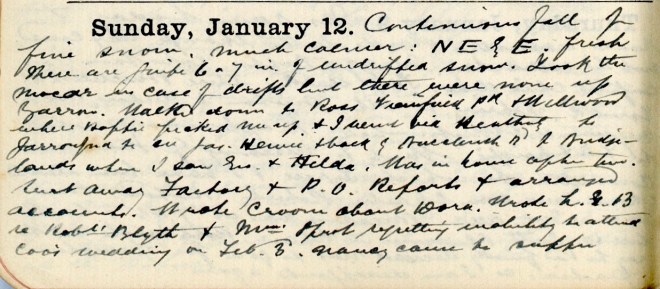 Sunday, January 12. Continuous fall of
fine snow. much calmer: N E & E. fresh
There are quite 6-7 in. of undrifted snow. Took the
mocar in case of drifts but there were none up
Yarrow. Walked down to Ross Greenfield & Wellwood
where picked me up & I went via Heathy to
to see Jas. back & Buccleuch Rd & Bridge-
lands when I saw Geo. & Hilda. Was in home after two.
Sent away Factory & P.O. Reports & arranged
accounts. Wrote Croom about Dora. Wrote
re Robt Blyth & Mrs regretting inability to attend
Coo's wedding on Feb. 5. Nancy came to supper